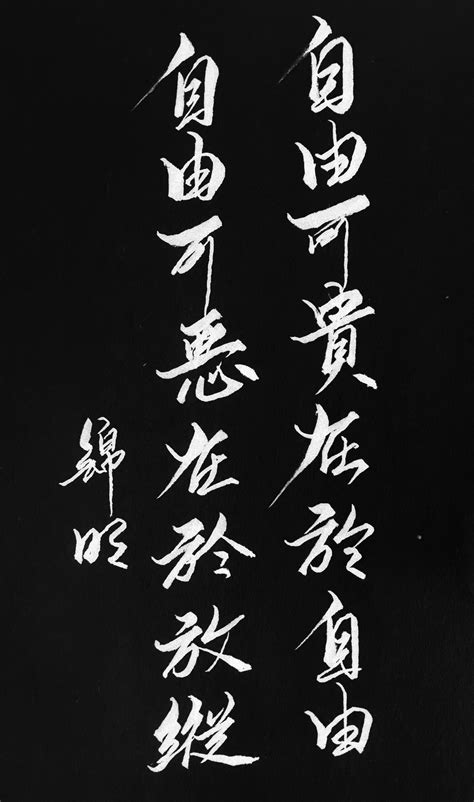 自由可貴在於自由
自由可惡在於放縱
錦明